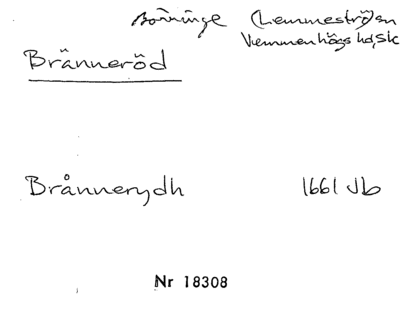 Börringe (Lemmeströ)sn
Vemmenhögs hd, Sk
Bränneröd
Brånnerydh 1661 Jb
Nr 18308